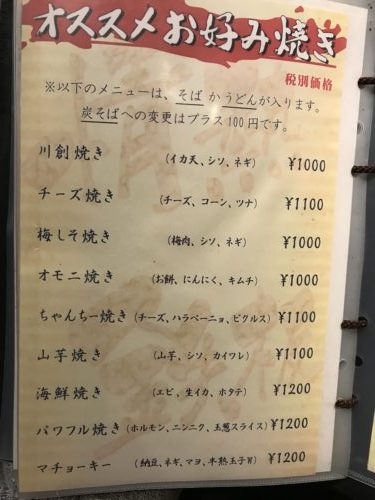 オススメお好み焼き
税別価格
※以下のメニューは、そばかうどんが入ります。
炭そばへの変更はプラス100円です。
川創焼き (イカ天、シソ、ネギ) ¥1000
チーズ焼き (チーズ、コーン、ツナ) ¥1100
梅しそ焼き (梅肉、シソ、ネギ) ¥1000
オモニ焼き (お餅、にんにく、キムチ) ¥1000
ちゃんちー焼き (チーズ、ハラペーニョ、ピクルス) ¥1100
山芋焼き (山芋、シソ、カイワレ) ¥1100
海鮮焼き (エビ、生イカ、ホタテ) ¥1200
パワフル焼き (ホルモン、ニンニク、玉葱スライス) ¥1200
マチョーキー (納豆、ネギ、マヨ、半熟玉子) ¥1200